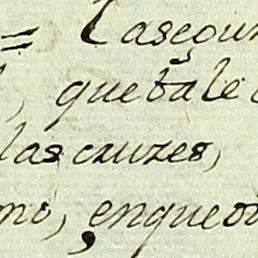 = Lasegun
, quebale
las cruzes,
mo, enqueo